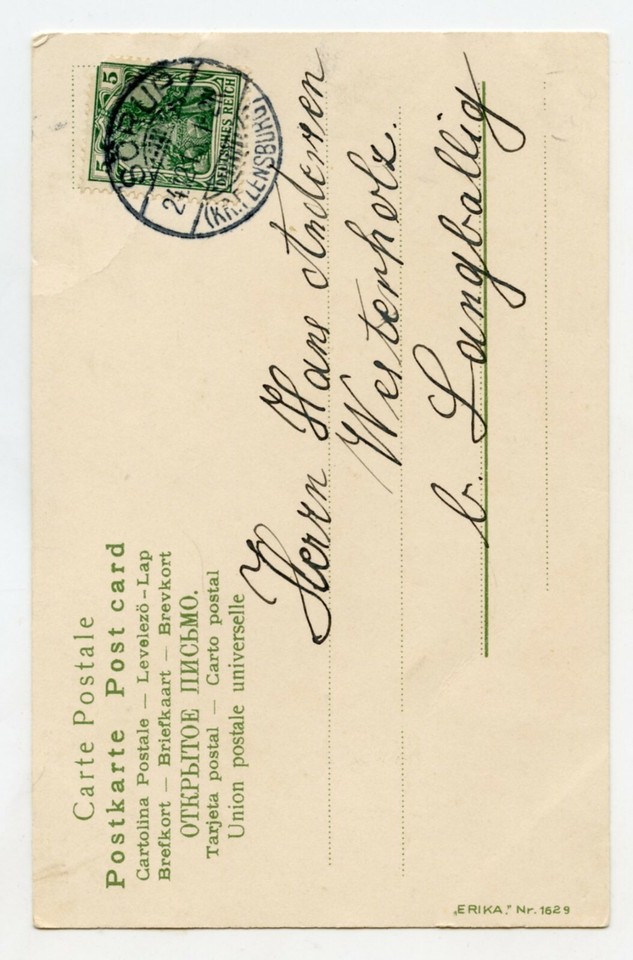 Carte Postale
Postkarte Post card
Cartolina Postale — Levelező-Lap
Brefkort — Briefkaart — Brevkort
ОТКРЫТОЕ ПИСЬМО.
Tarjeta postal — Carto postal
Union postale universelle
5
5
DEUTSCHES REICH
SÖRUP
(KR. FLENSBURG)
Herrn Hans Andersen
Westerholz.
b. Langballig
„ERIKA." Nr. 1629